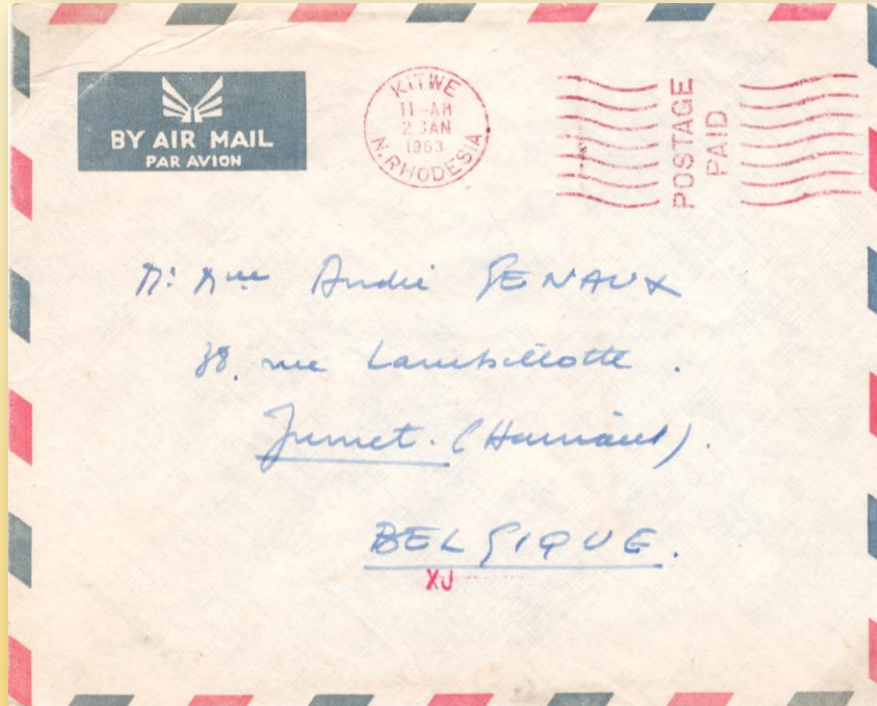 BY AIR MAIL
PAR AVION
KITWE
11-AM
2 JAN
1963
N. RHODESIA
POSTAGE
PAID
Mr Mme André GENAUX
38, rue Lambillotte.
Jumet. (Hainaut).
BELGIQUE.
XJ